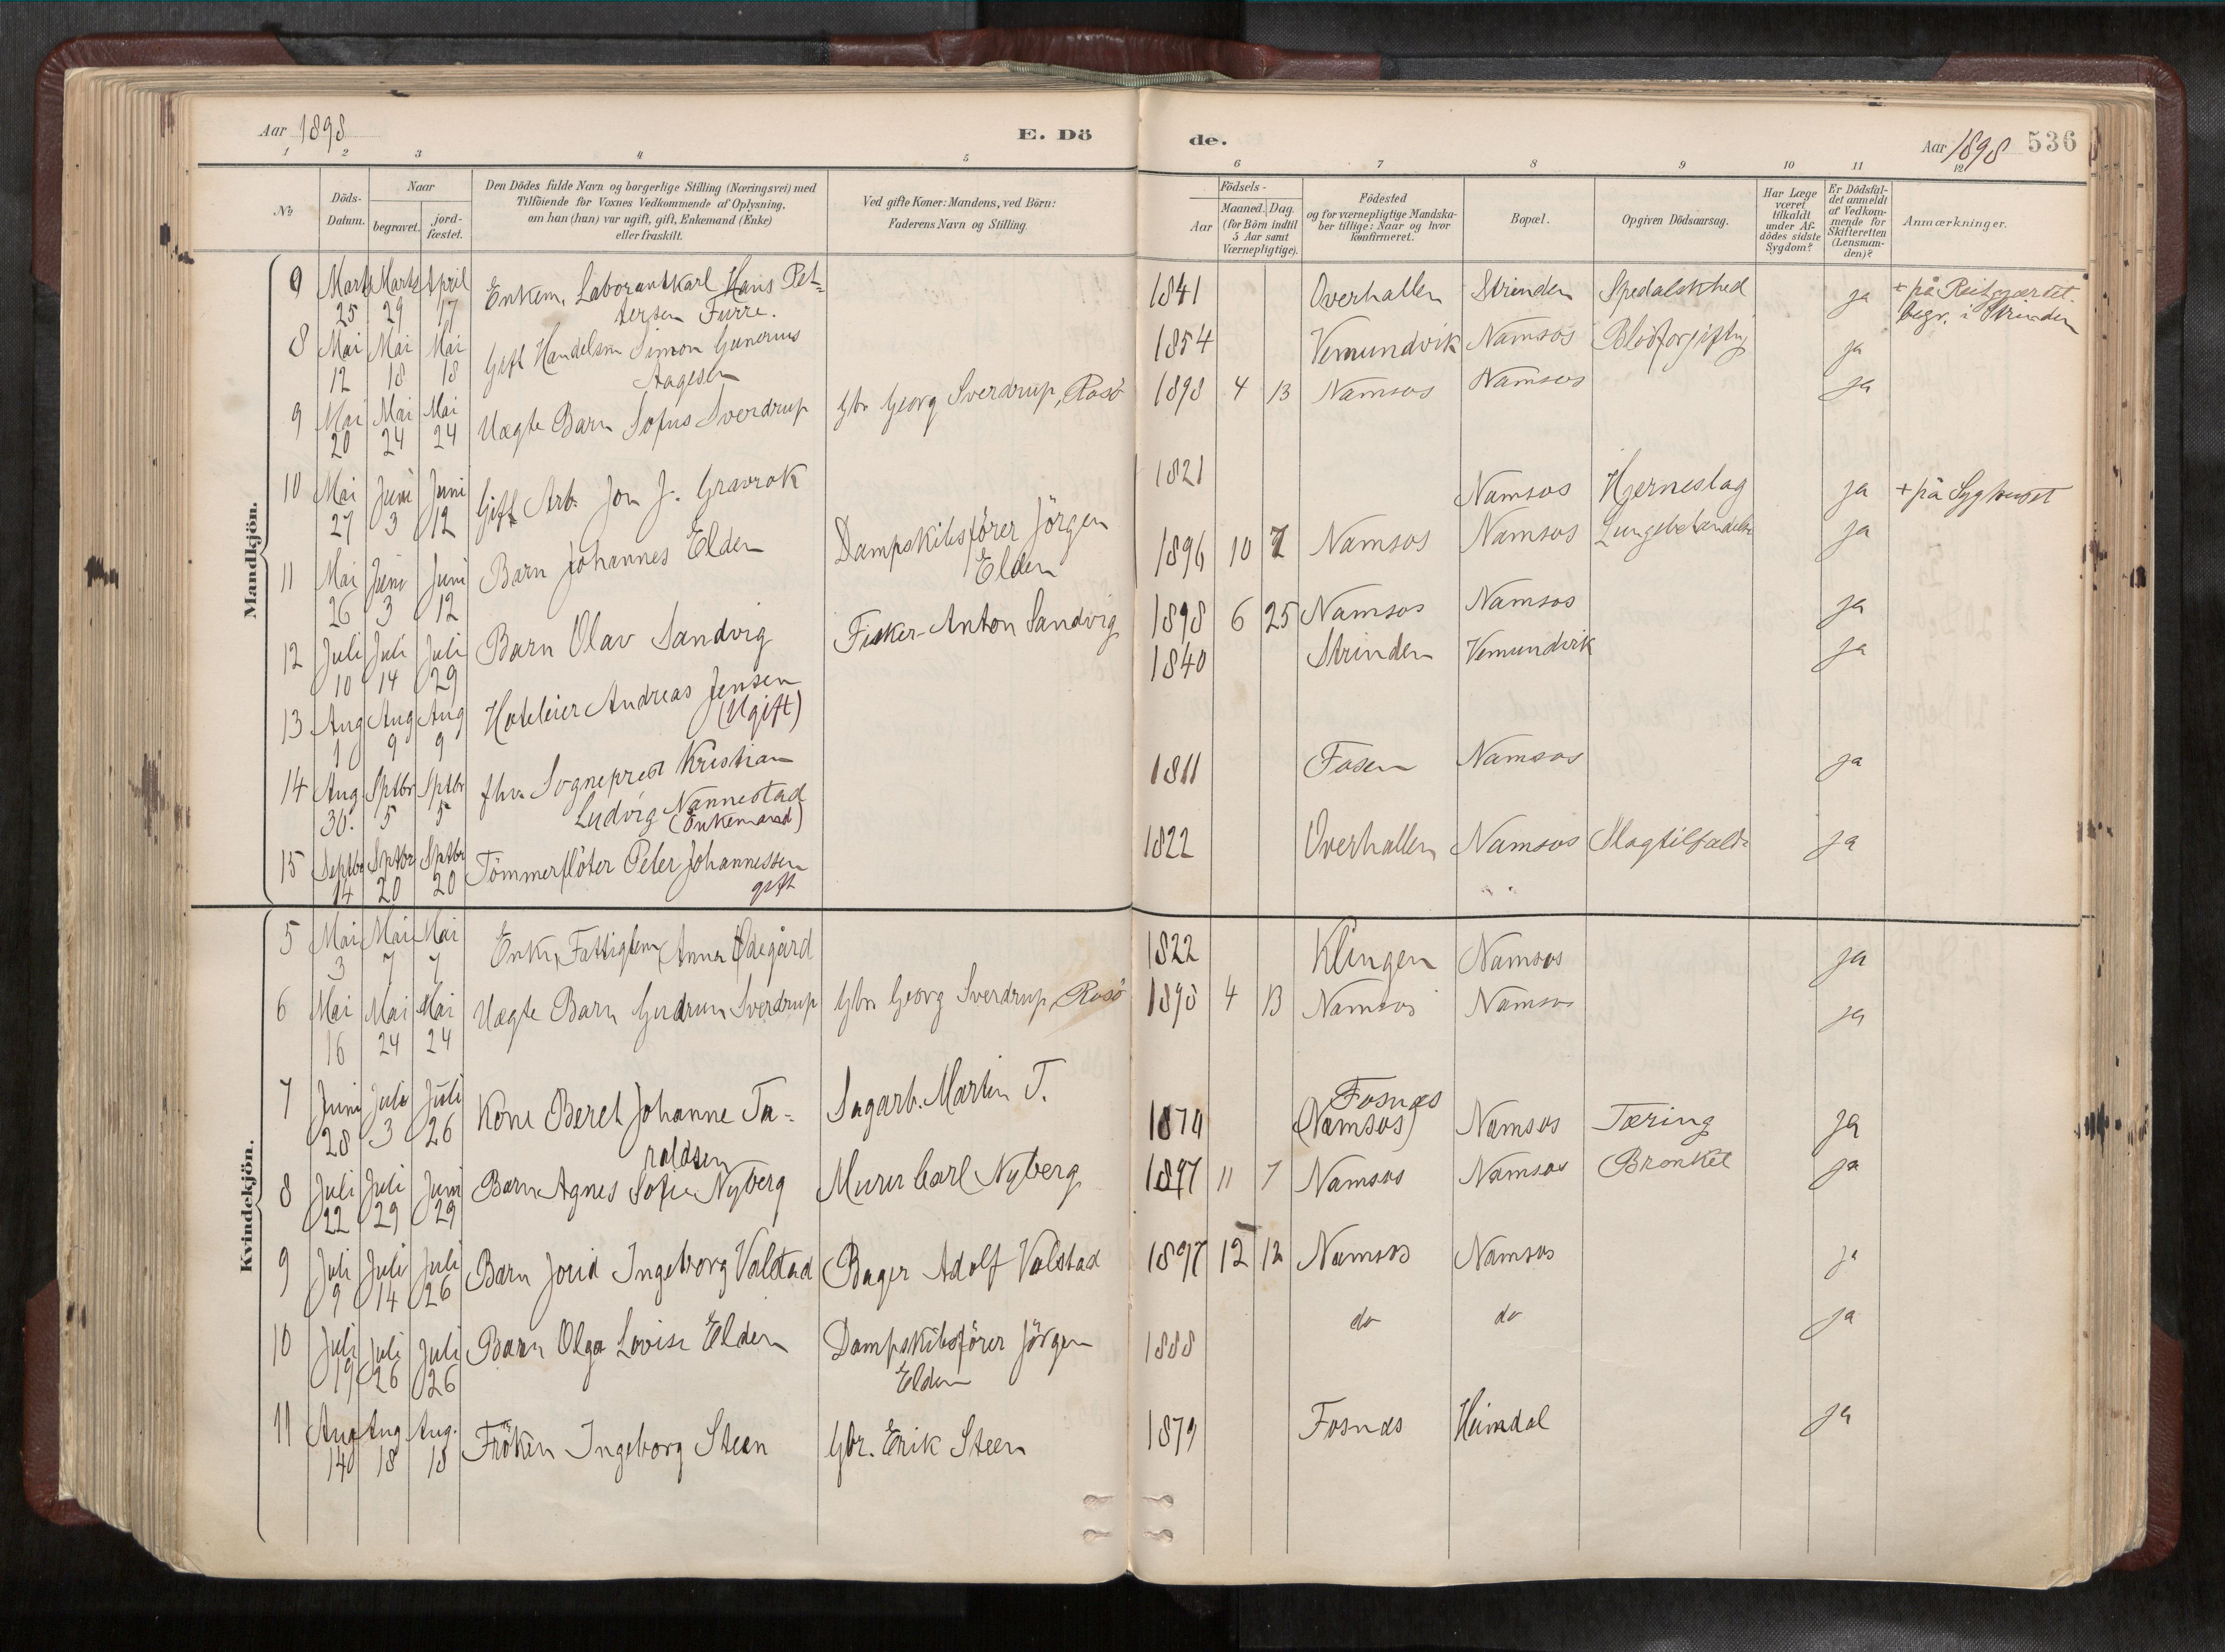 Aar 1898
E. Dö
de.
Aar 1898 536
1 2 3 4 5 6 7 8 9 10 11 12
No
Döds-Datum.
Naar
begravet.
jord-fæstet.
Den Dödes fulde Navn og borgerlige Stilling (Næringsvei) med
Tilföiende for Voxnes Vedkommende af Oplysning,
om han (hun) var ugift, gift, Enkemand (Enke)
eller fraskilt.
Ved gifte Koner: Mandens, ved Börn:
Faderens Navn og Stilling.
Födsels-
Aar
Maaned. Dag.
(for Börn indtil
5 Aar samt
Værnepligtige).
Födested
og for værnepligtige Mandska-
ber tillige: Naar og hvor
konfirmeret.
Bopæl.
Opgiven Dödsaarsag.
Har Læge
været
tilkaldt
under Af-
dödes sidste
Sygdom?
Er Dödsfal-
det anmeldt
af Vedkom-
mende for
Skifteretten
(Lensman-
den)?
Anmærkninger.
Mandkjön.
9 Marts Marts April Enkem. Laborantkarl Hans Pet- 1841 Overhallen Strinden Spedalskhed ja + på Reitgjærdet.
25 29 17 tersen Furre. begr. i Strinden
8 Mai Mai Mai Gift Handelsm Simon Gunerius 1854 Vemundvik Namsos Blodforgiftng ja
12 18 18 Aagesen
9 Mai Mai Mai Uægte Barn Sofus Sverdrup Gbr Georg Sverdrup, Rosö 1898 4 13 Namsos Namsos ja
20 24 24
10 Mai Juni Juni Gift Arb. Jon J. Gravrok 1821 Namsos Hjerneslag ja + på Syghuset
27 3 12
11 Mai Juni Juni Barn Johannes Elden Dampskibsförer Jörgen 1896 10 7 Namsos Namsos Lungebetændelse ja
26 3 12 Elden
12 Juli Juli Juli Barn Olav Sandvig Fisker Anton Sandvig 1898 6 25 Namsos Namsos ja
10 14 29
13 Aug Aug Aug Hoteleier Andreas Jensen 1840 Strinden Vemundvik ja
1 9 9 (Ugift)
14 Aug Sptbr Sptbr fhv. Sogneprest Kristian 1811 Fosen Namsos ja
30. 5 5 Ludvig Nannestad
(Enkemand)
15 Septbr Sptbr Sptbr Tömmerflöter Peter Johannessen 1822 Overhallen Namsos Slagtilfælde ja
14 20 20 gift
Kvindekjön.
5 Mai Mai Mai Enke, Fattiglem Anna Ødegård 1822 Klingen Namsos ja
3 7 7
6 Mai Mai Mai Uægte Barn Gudrun Sverdrup Gbr Georg Sverdrup, Rosö 1898 4 13 Namsos Namsos ja
16 24 24
7 Juni Juli Juli Kone Beret Johanne Ta- Sagarb. Martin T. 1874 Fosnæs
28 3 26 raldsen (Namsos) Namsos Tæring ja
8 Juli Juli Juni Barn Agnes Sofie Nyberg Murer Carl Nyberg 1897 11 7 Namsos Namsos Bronkit ja
22 29 29
9 Juli Juli Juli Barn Jorid Ingeborg Valstad Bager Adolf Valstad 1897 12 12 Namsos Namsos ja
9 14 26
10 Juli Juli Juli Barn Olga Lovise Elden Dampskibsförer Jörgen 1888 do do ja
19 26 26 Elden
11 Aug Aug Aug. Fröken Ingeborg Steen Gbr. Erik Steen 1879 Fosnæs Heimdal ja
14 18 18